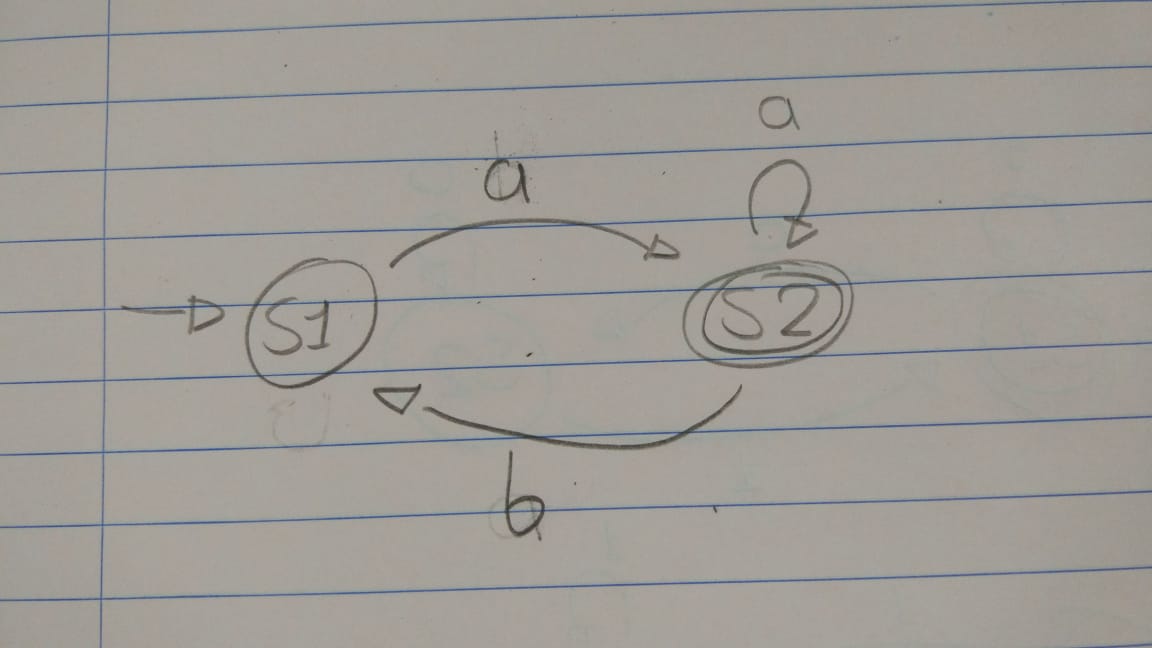 a
a
S1
S2
b